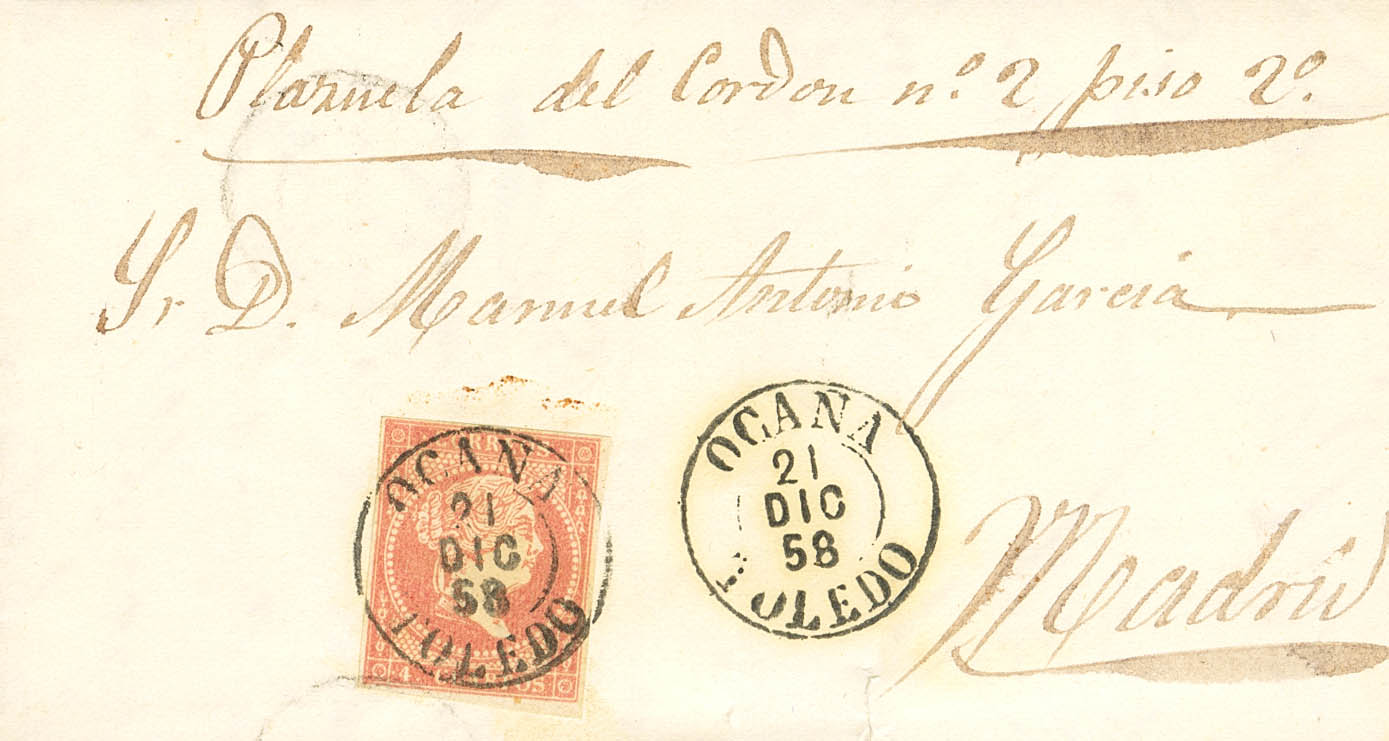 Plazuela del Cordon nº 2 piso 2º
Sr. D. Manuel Antonio Garcia
Madrid
OCAÑA
21
DIC
58
TOLEDO
OCAÑA
21
DIC
58
TOLEDO